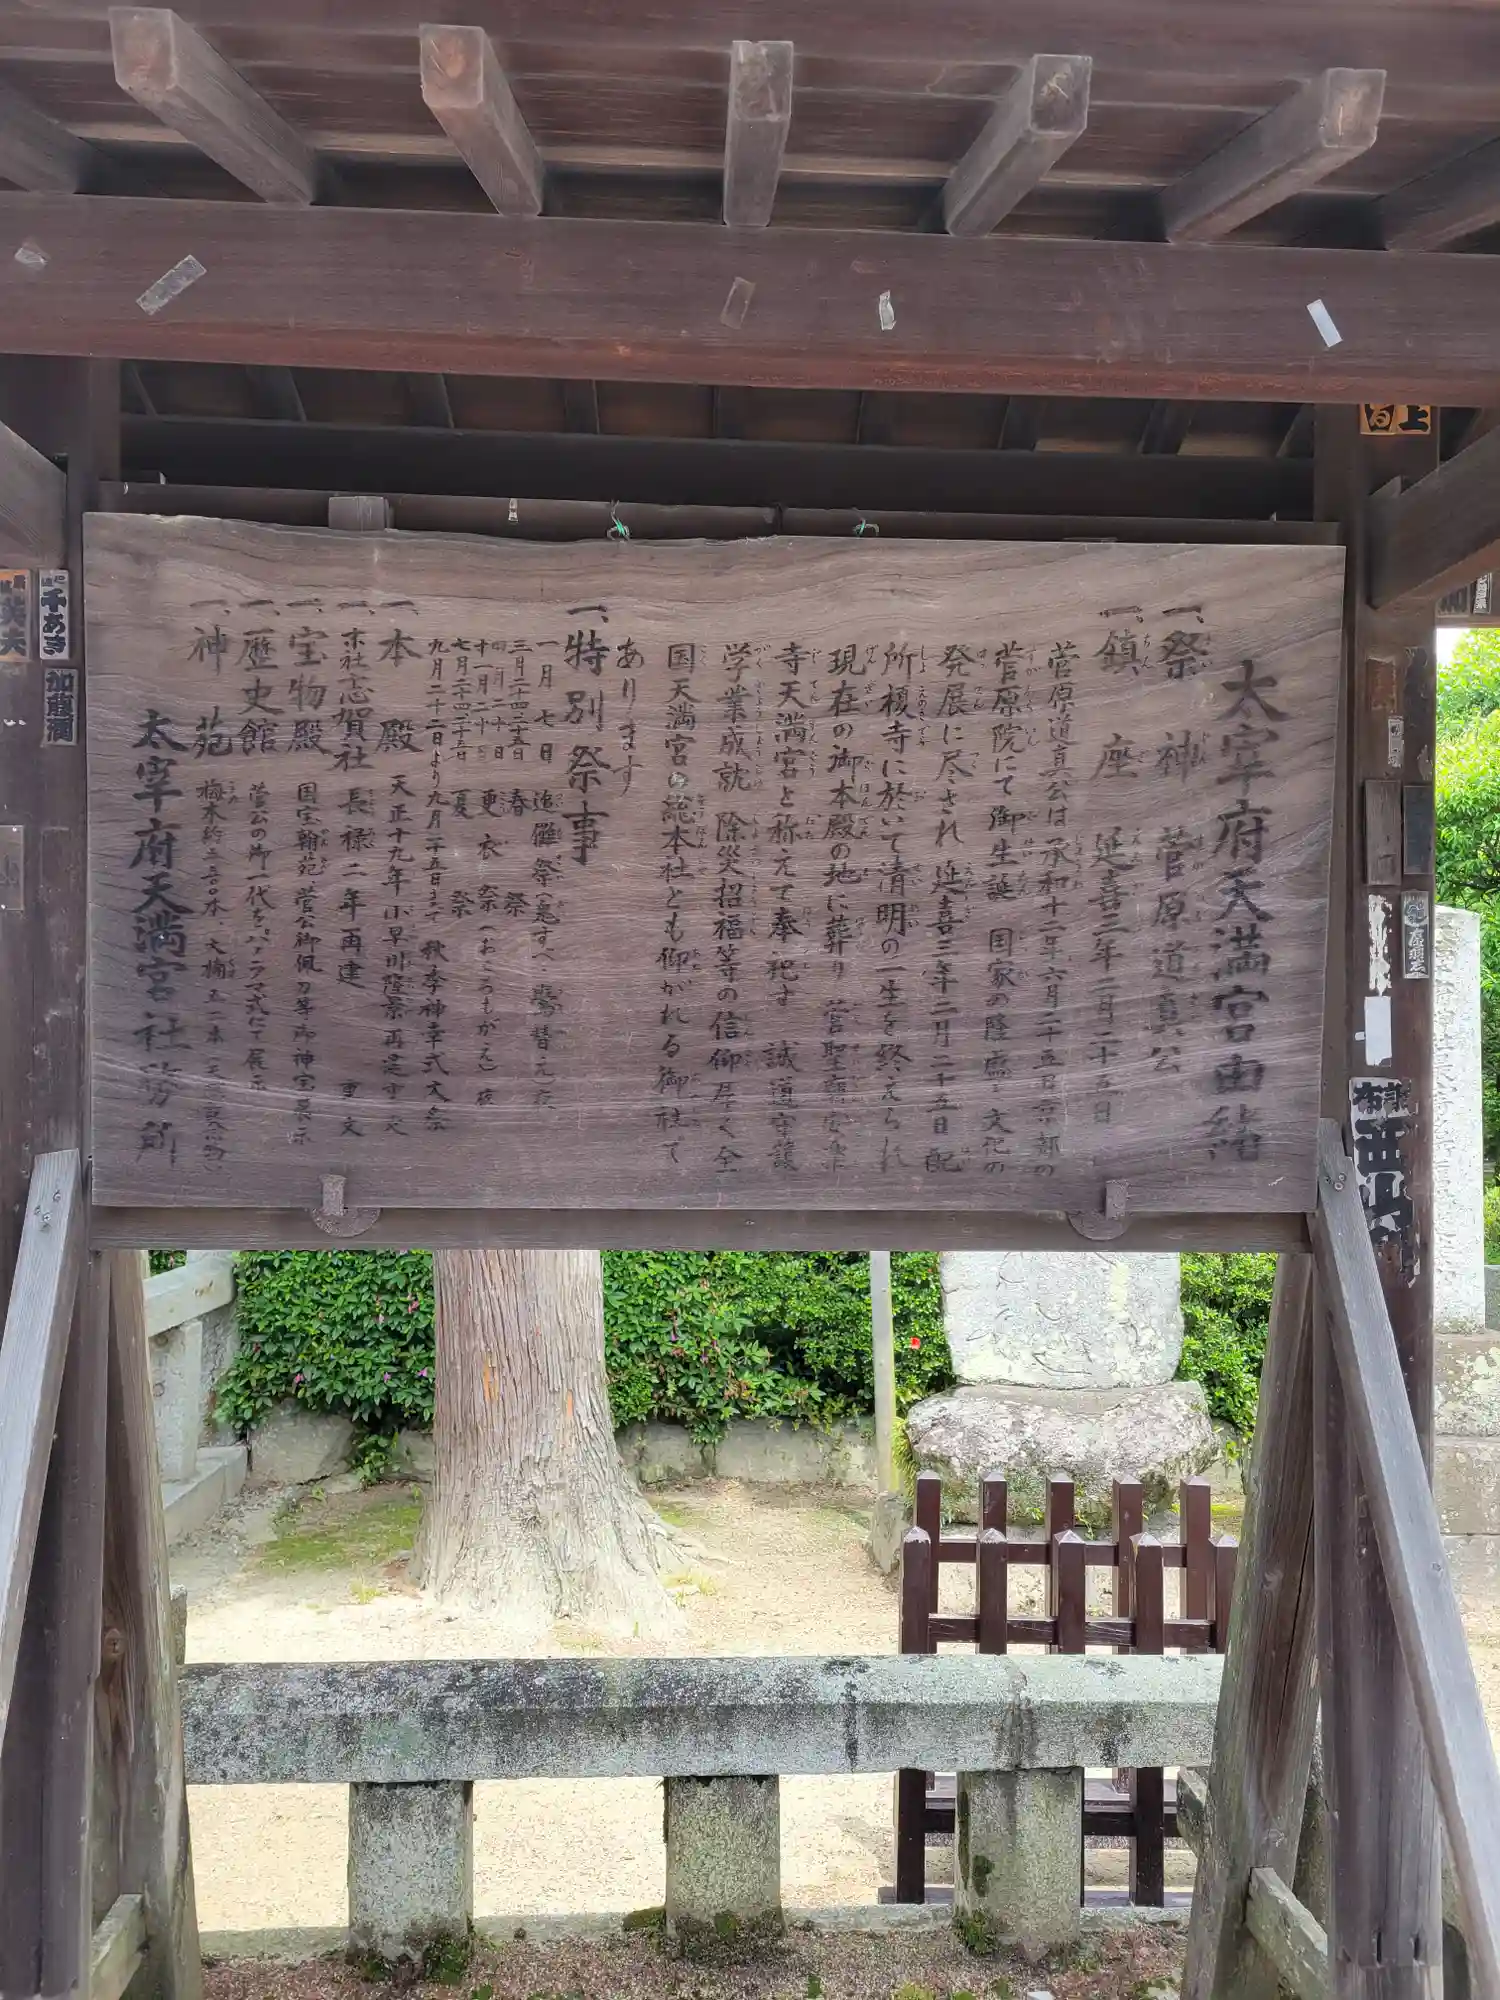 太宰府天満宮由緒
一、祭神 菅原道真公
一、鎮座 延喜三年二月二十五日
菅原道真公は承和十二年六月二十五日京都の
菅原院にて御生誕 国家の隆盛と文化の
発展に尽され 延喜三年二月二十五日 配
所榎寺に於いて清明の一生を終えられ
現在の御本殿の地に葬り 菅聖廟安楽
寺天満宮と称えて奉祀す 誠道守護
学業成就 除災招福等の信仰厚く全
国天満宮の総本社とも仰がれる御社で
あります
一、特別祭事
一月 七日 追儺祭(鬼すべ 鷽替え)夜
三月二十四二十五日 春祭
四月 二十日
十一月二十日 更衣祭(おころもがえ)夜
七月二十四二十五日 夏祭
九月二十二日より九月二十五日まで 秋季神幸式大祭
一、本殿 天正十九年小早川隆景再建 重文
一、末社志賀社 長禄二年再建 重文
一、宝物殿 国宝翰苑 菅公御佩刀等御神宝展示
一、歴史館 菅公の御一代を パノラマ式にて展示
一、神苑 梅木約三〇〇〇本、大楠五一本
太宰府天満宮社務所
千あき
加藤
英夫
上